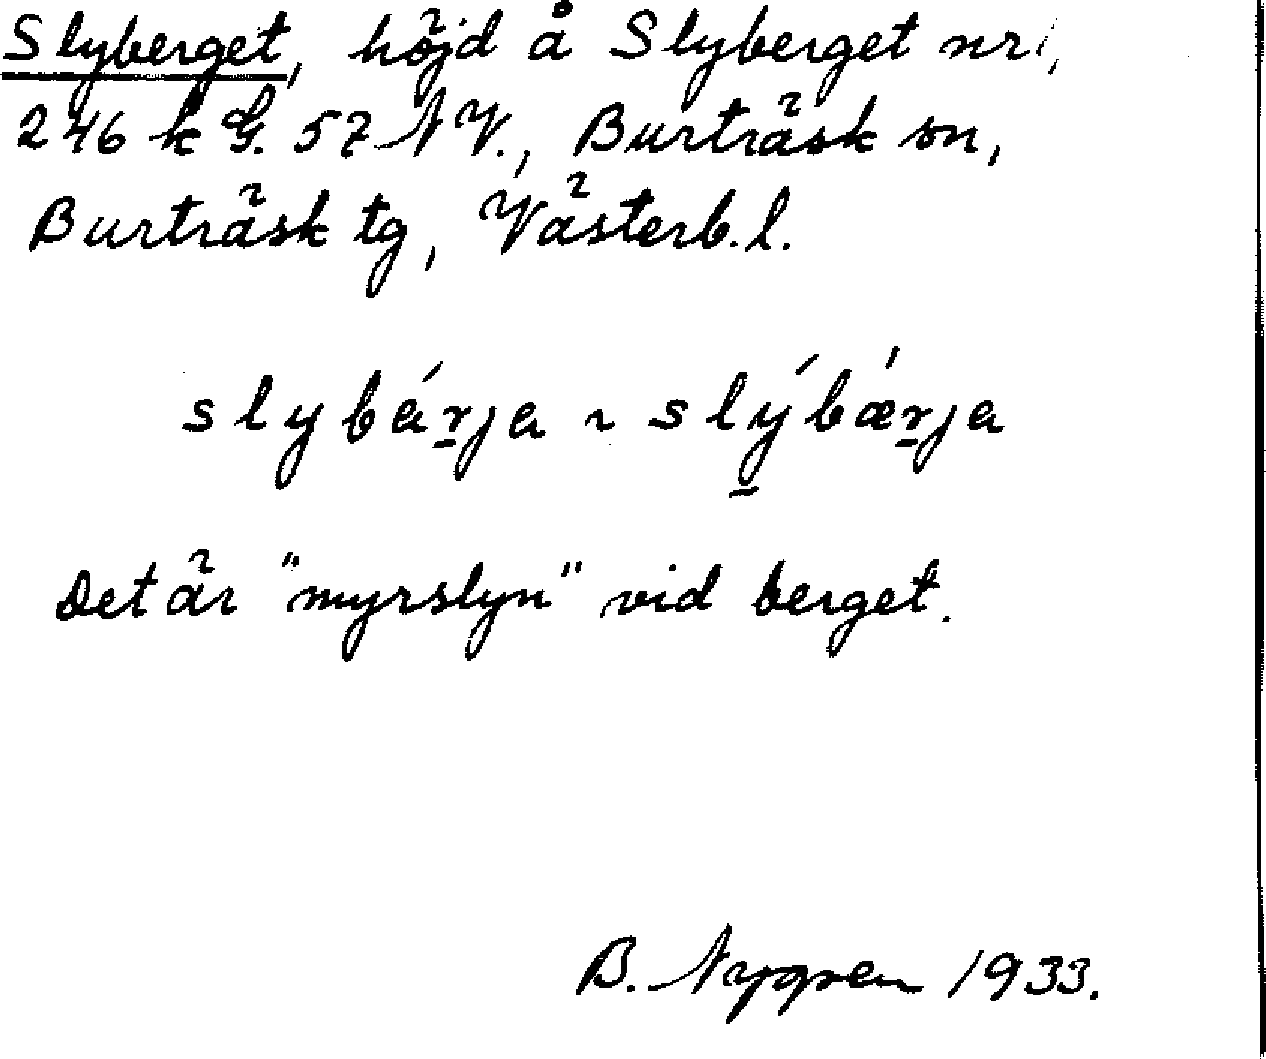 Slyberget, höjd å Slyberget nr 1,
246 k G. 57 NV., Burträsk sn,
Burträsk tg, Västerb. l.
slybá̱rja ~ slý̱bǽṟja
Det är "myrslyn" vid berget.
B. Nygren 1933.